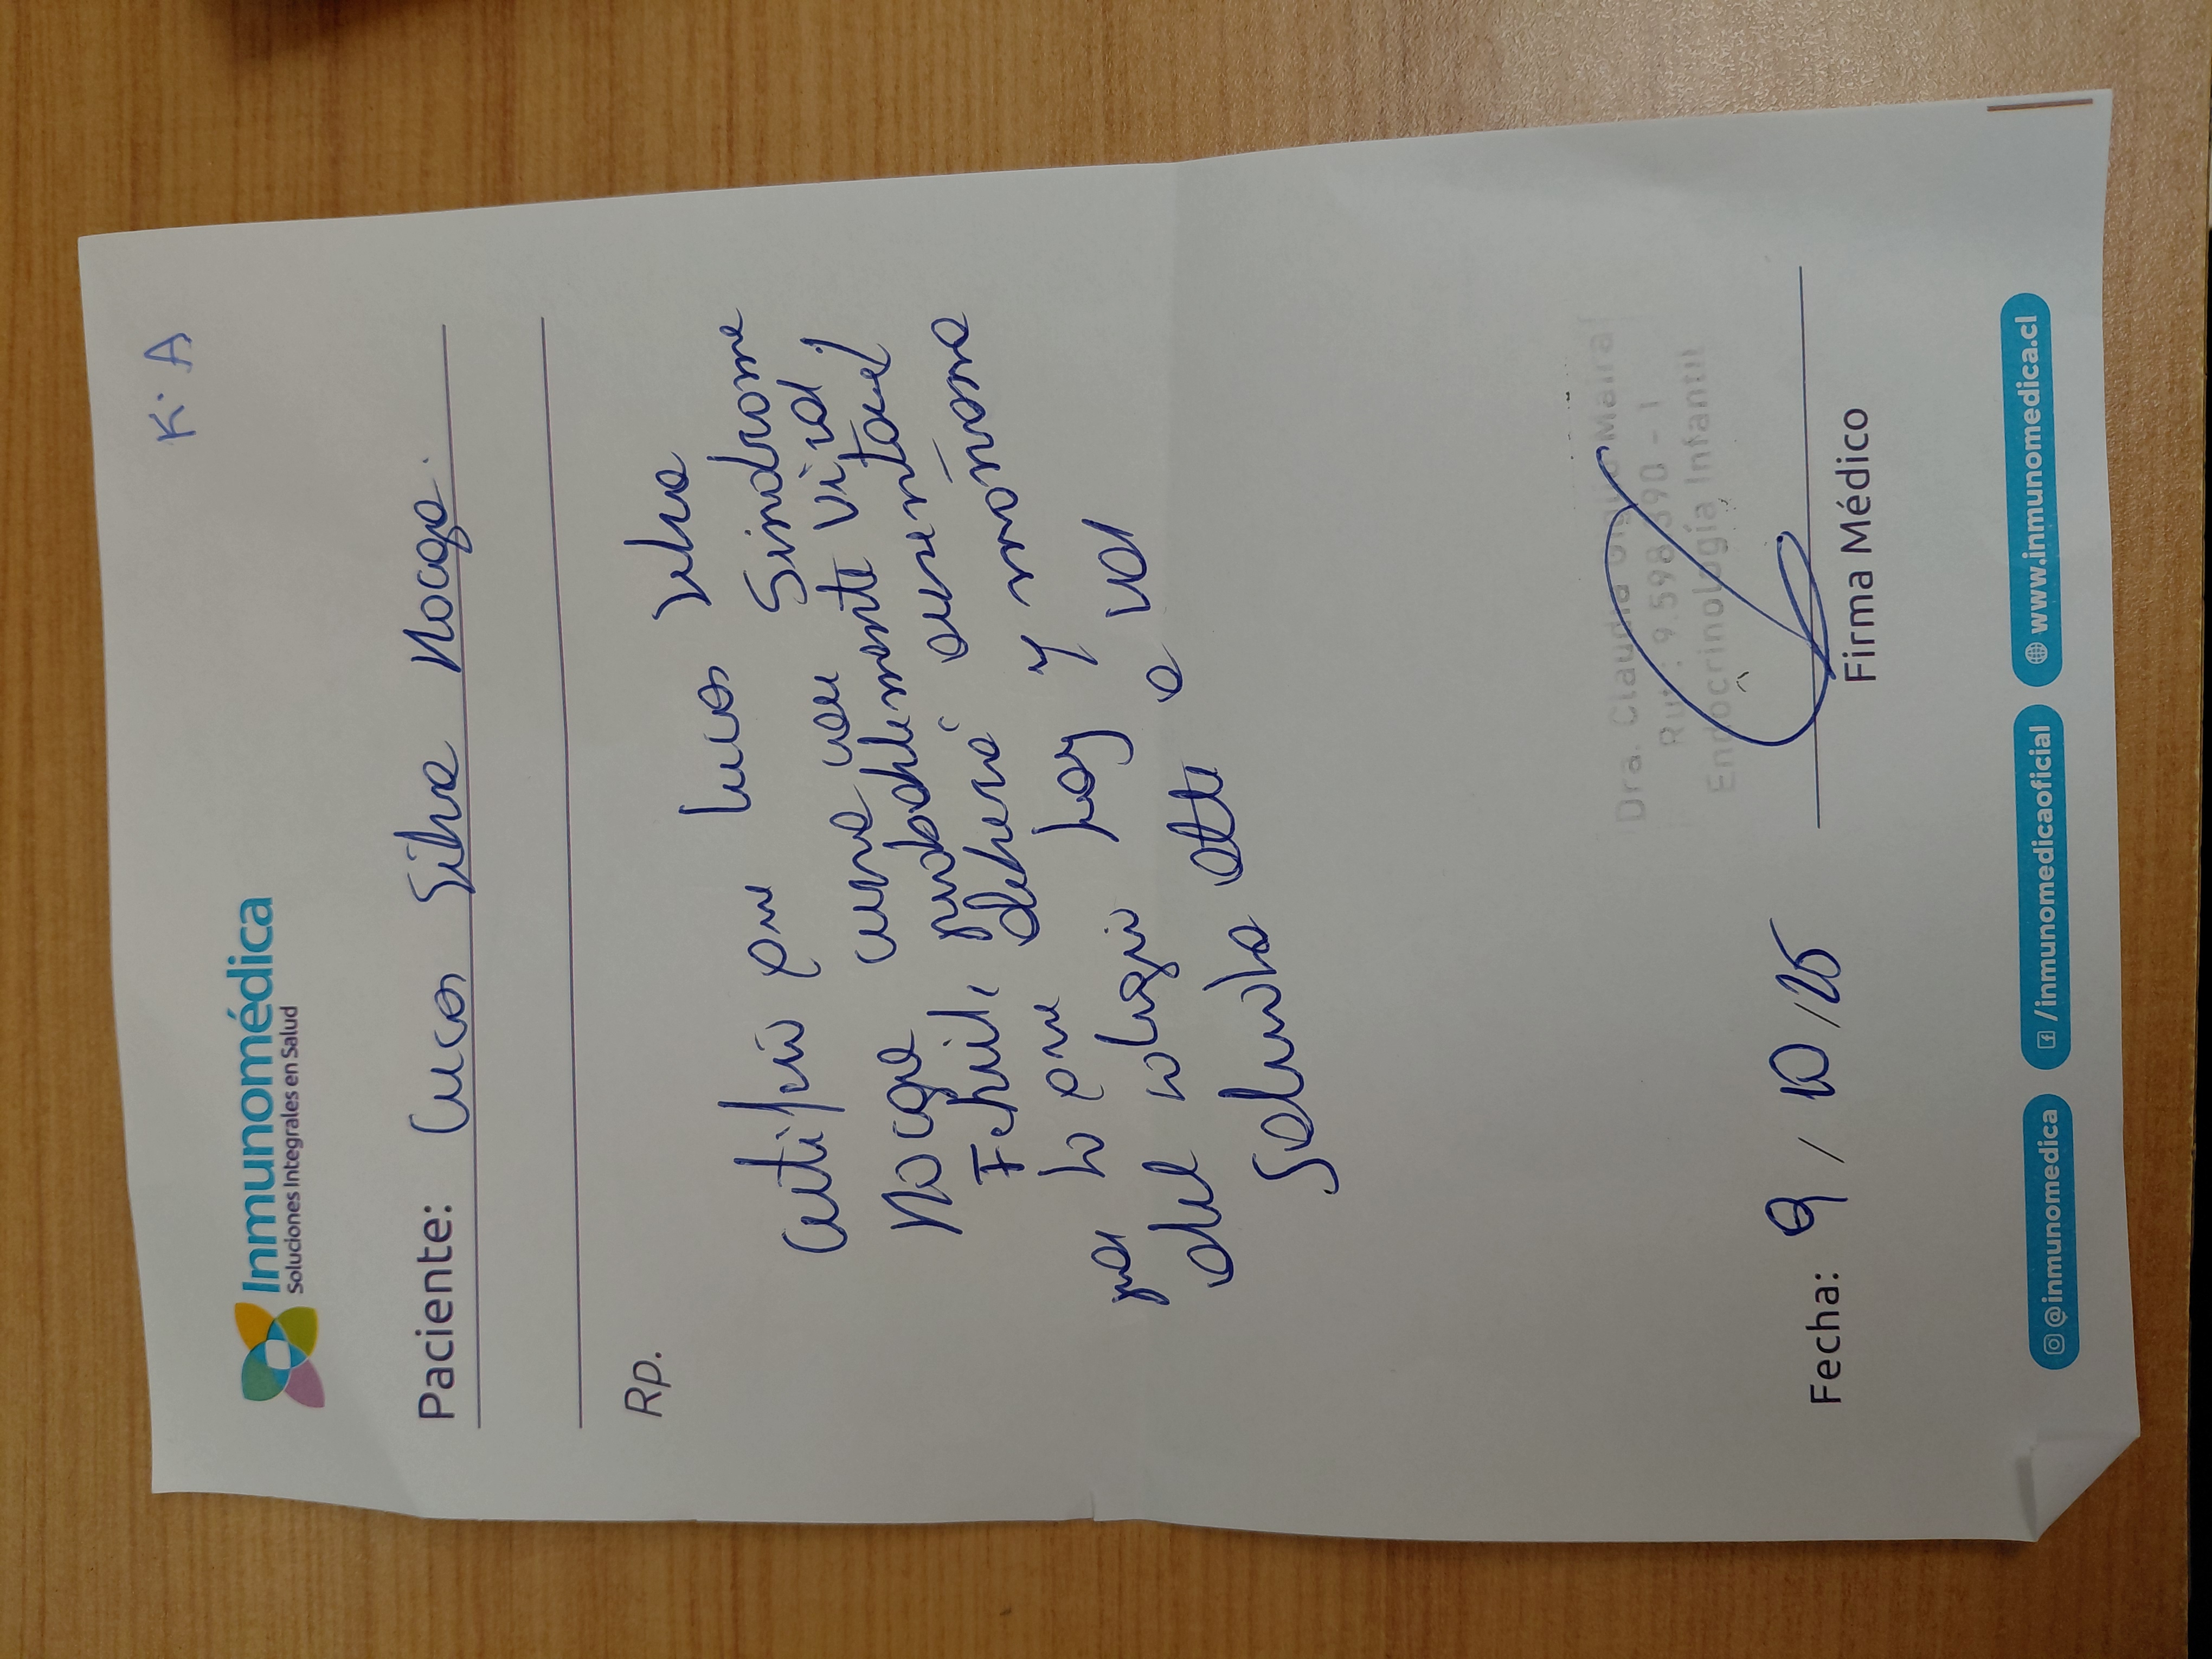 K. A
Inmunomédica
Soluciones Integrales en Salud
Paciente: Lucas Silva Nocage.
Rp.
Certifico que Lucas Silva
Nocage cursa con Sindrome
Febril, probablemente viral,
por lo que deberá ausentarse
del colegio hoy y mañana
Solicito dar a
Dra. Claudia Maira
Rut: 9.598.390-1
Endocrinología Infantil
Firma Médico
Fecha: 9 / 10 / 25
@inmunomedica /inmunomedicaoficial www.inmunomedica.cl